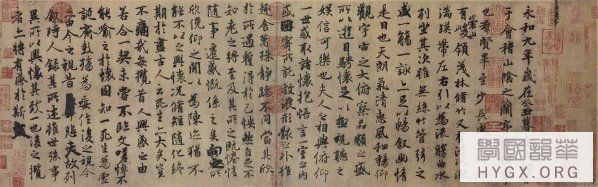 永和九年歲在癸丑暮春之初會
于會稽山陰之蘭亭脩禊事
也群賢畢至少長咸集此地
有崇山峻領茂林脩竹又有清流激
湍暎帶左右引以為流觴曲水
列坐其次雖無絲竹管弦之
盛一觴一詠亦足以暢敘幽情
是日也天朗氣清惠風和暢仰
觀宇宙之大俯察品類之盛
所以遊目騁懷足以極視聽之
娛信可樂也夫人之相與俯仰
一世或取諸懷抱悟言一室之內
或因寄所託放浪形骸之外雖
趣舍萬殊靜躁不同當其欣
於所遇暫得於己怏然自足不
知老之將至及其所之既惓情
隨事遷感慨係之矣向之所
欣俛仰之閒以為陳迹猶不
能不以之興懷況脩短隨化終
期於盡古人云死生亦大矣豈
不痛哉每攬昔人興感之由
若合一契未嘗不臨文嗟悼不
能喻之於懷固知一死生為虛
誕齊彭殤為妄作後之視今
亦由今之視昔悲夫故列
敘時人錄其所述雖世殊事
異所以興懷其致一也後之攬
者亦將有感於斯文
華韻國學
HYGX.ORG